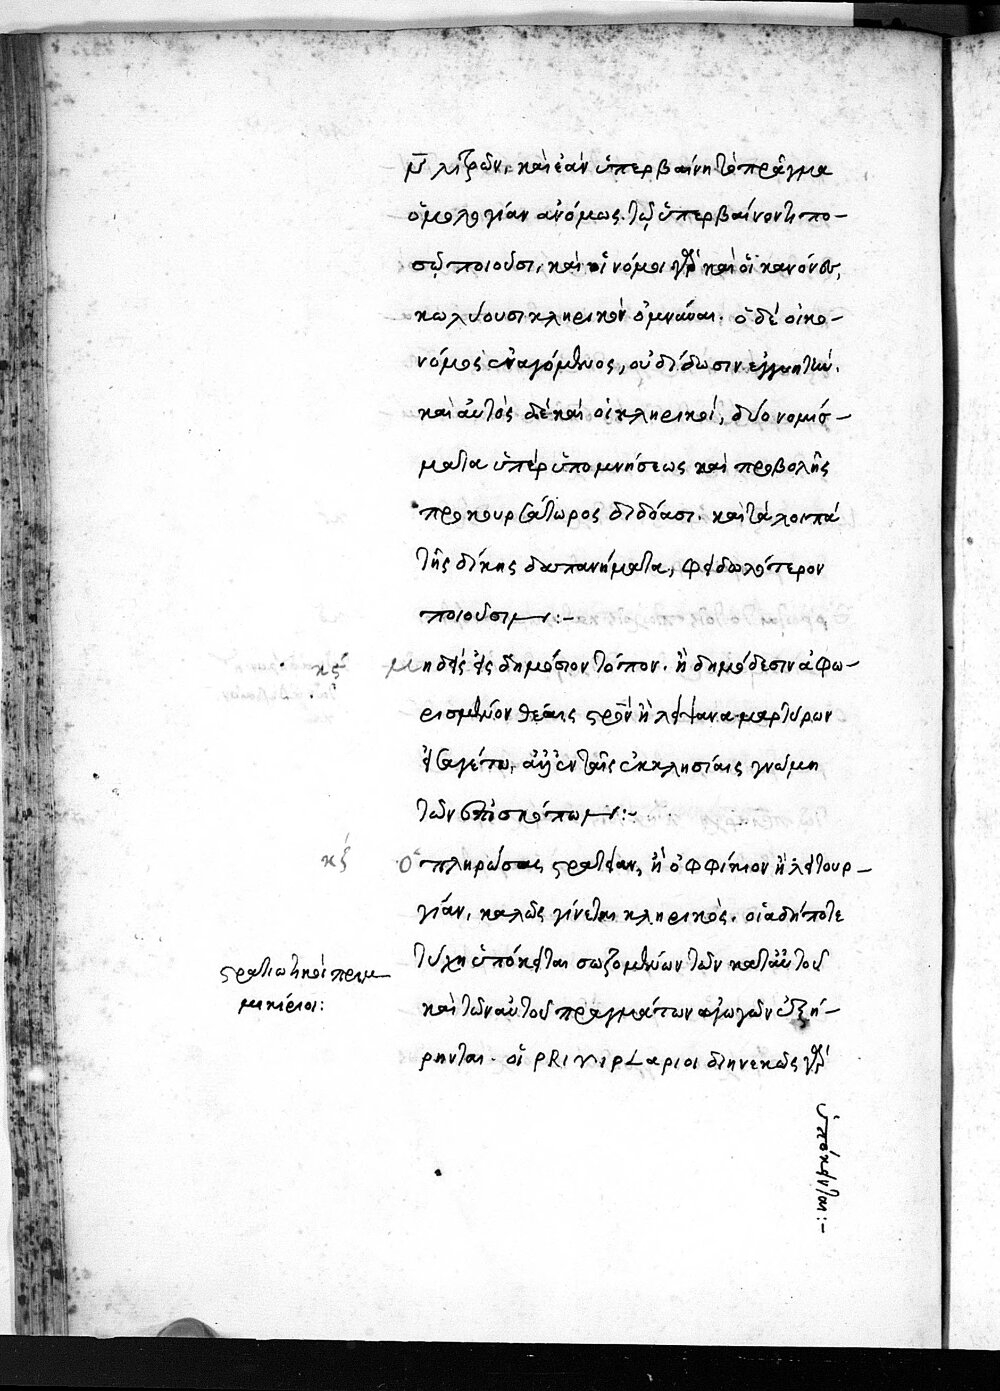 μ̅ λιτρῶν, καὶ ἐὰν ὑπερβαίνη τὸ πρᾶγμα
ὁμολογίαν ἀνόμως. τῷ ὑπερβαίνοντι πο–
σῷ ποιοῦσι, καὶ οἱ νόμοι γὰρ καὶ οἱ κανόνες,
κωλύουσι κληρικὸν ὀμνύναι. ὁ δὲ οἰκο–
νόμος ἐναγόμενος, οὐ δίδωσιν ἐγγυητήν.
καὶ αὐτὸς δὲ καὶ οἱ κληρικοί, δύο νομίσ–
ματα ὑπὲρ ὑπομνήσεως καὶ προβολῆς
προκουράτωρος διδόασι. καὶ τὰ λοιπὰ
τῆς δίκης δαπανήματα, φειδωλότερον
ποιοῦσιν:–
κς μηδεὶς εἰς δημόσιον τόπον. ἢ δημόδεσιν ἀφω–
ρισμένον θέαις στρῶν ἢ λείψανα μαρτύρων
εἰσαγέτω, ἀλλ' ἐν ταῖς ἐκκλησίαις γνώμη
τῶν ἐπισκόπων:–
κζ ὁ πληρώσας στρατείαν, ἢ ὀφφίκιον ἢ λειτουρ–
γίαν, καλῶς γίνεται κληρικός. οἱαδήποτε
τύχη ὑπόκειται σωζομένων τῶν κατ' αὐτοῦ
καὶ τῶν αὐτοῦ πραγμάτων ἀγωγῶν ἐξή–
ρηνται. οἱ pRινιpLαριοι διηνεκῶς γὰρ
ὑπόκεινται:–
στρατιωτικοὶ πριμ
μικίριοι: